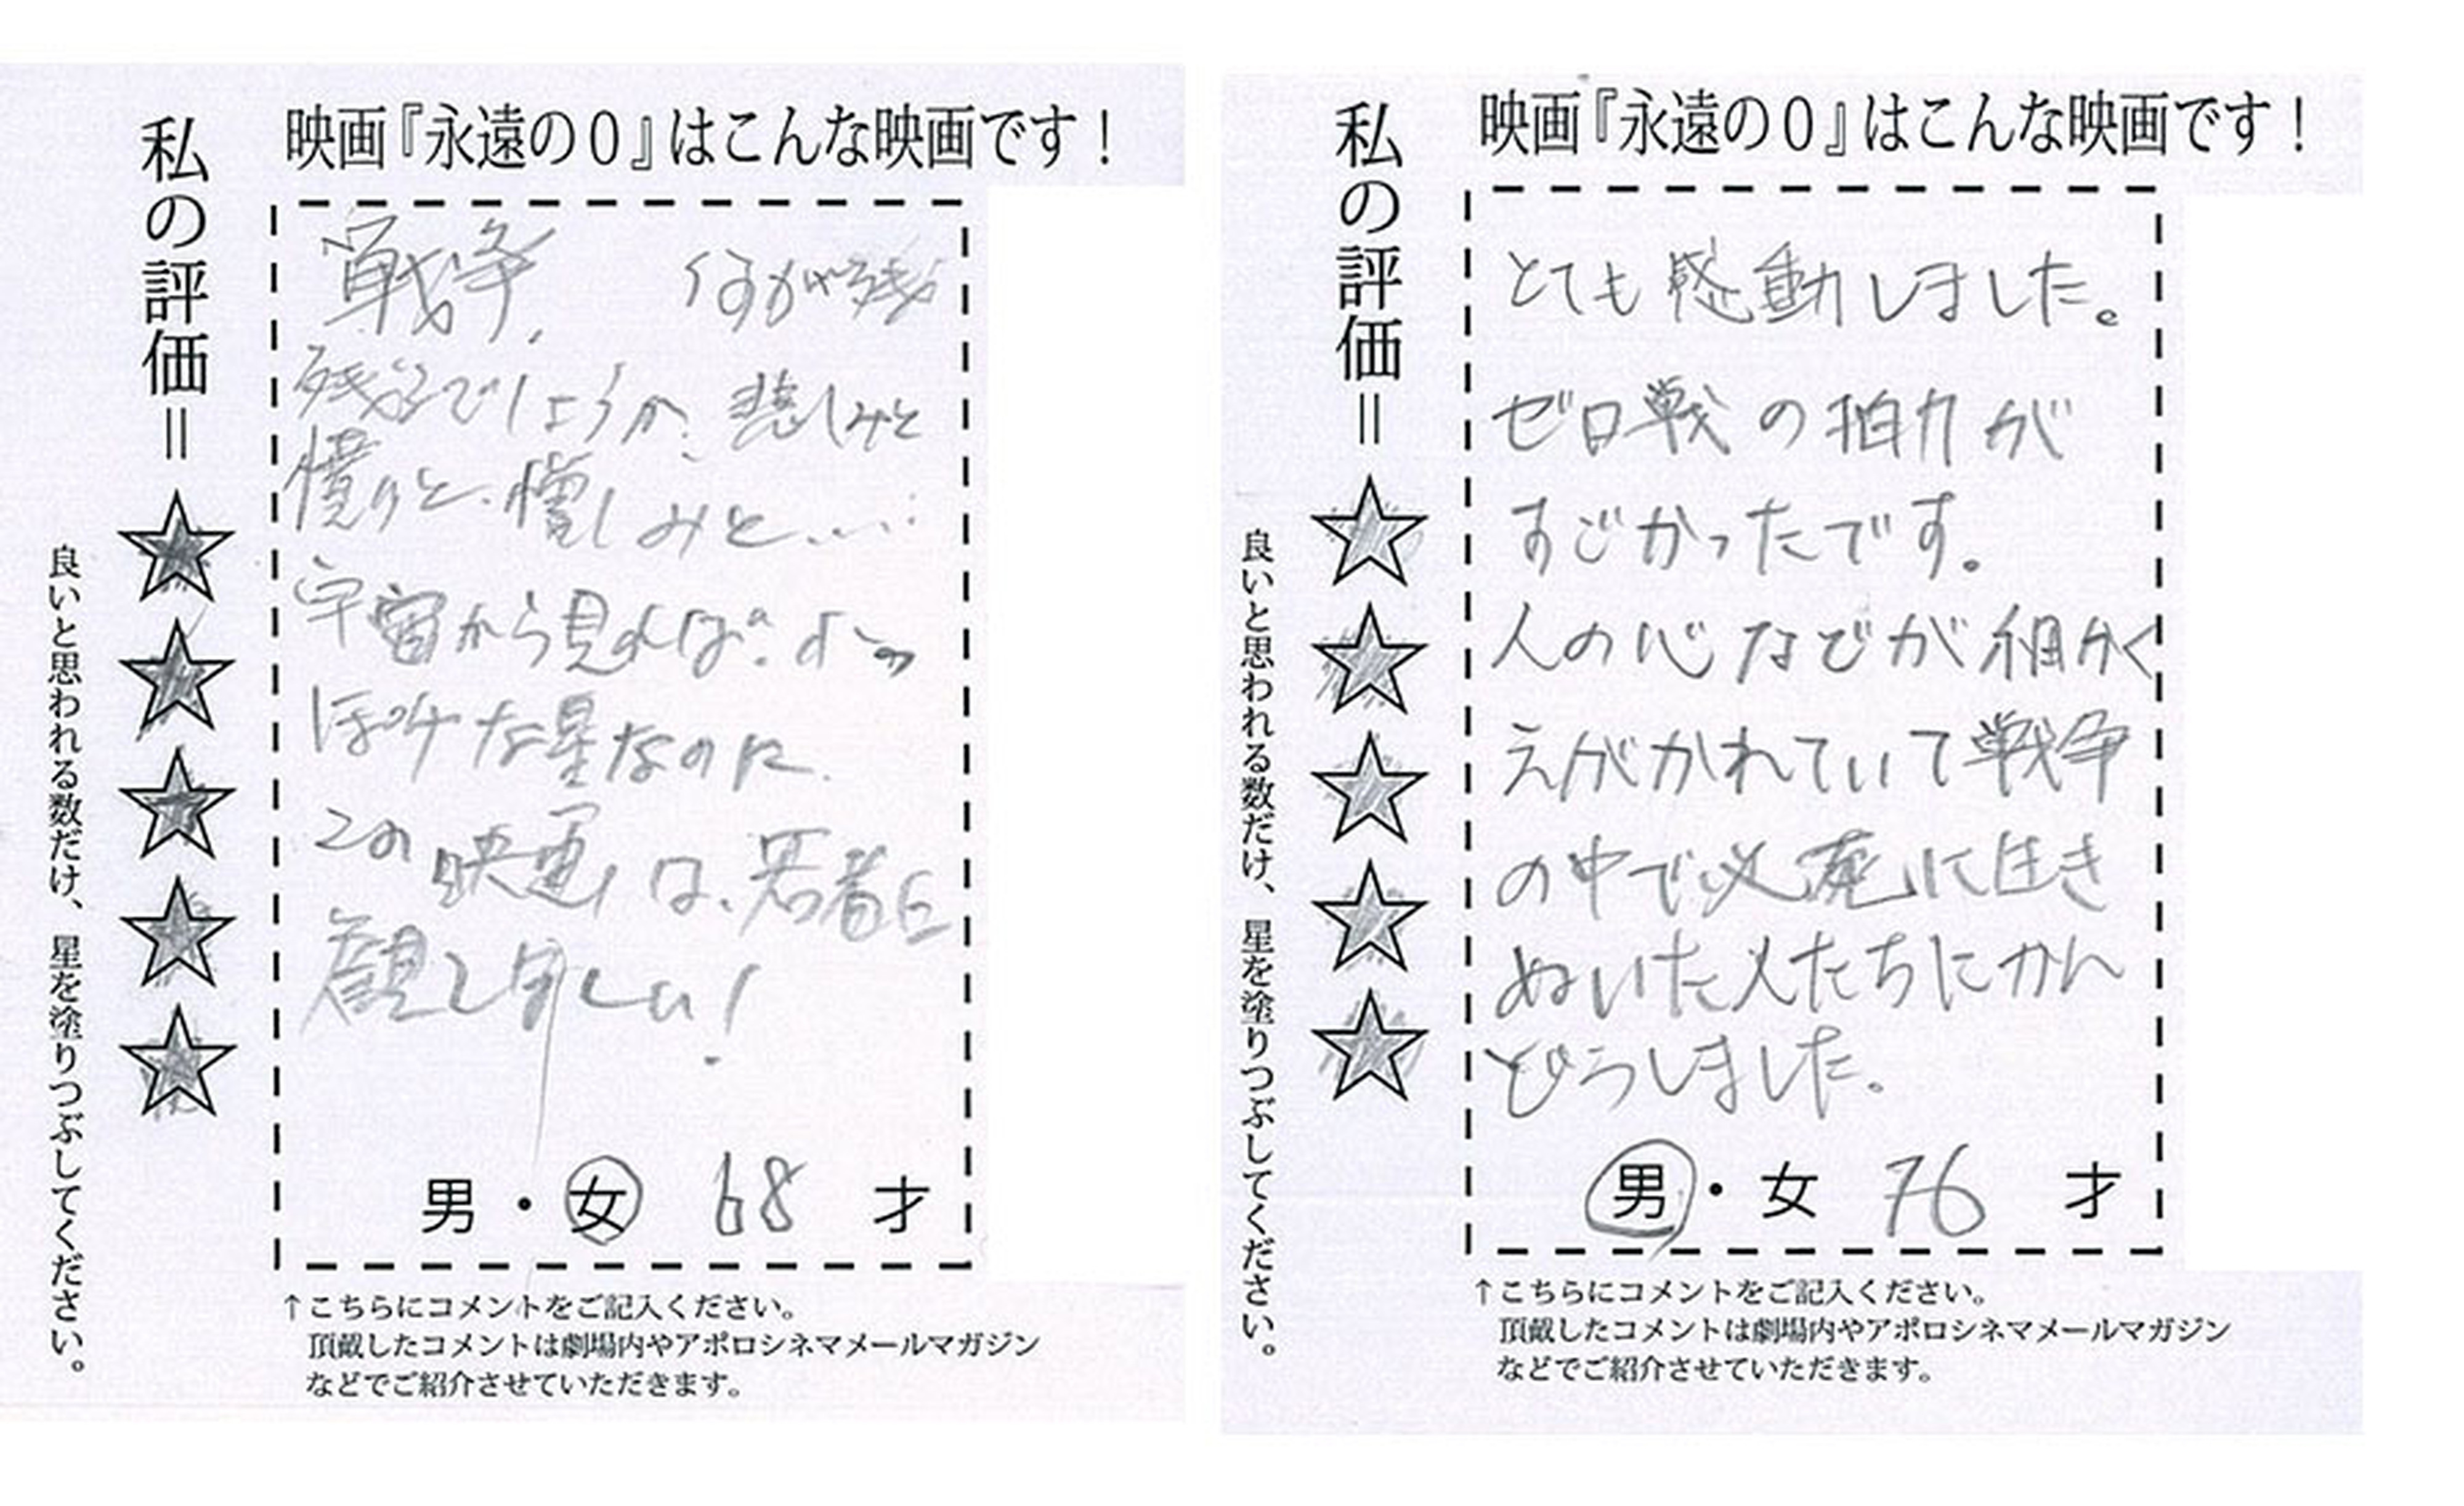 映画『永遠の0』はこんな映画です！
私の評価＝☆☆☆☆☆
良いと思われる数だけ、星を塗りつぶしてください。
戦争、
残るでしょうか、悲しみと
憤りと、憎しみと……
宇宙から見れば、
な星なのに、
この映画は、若者に
観てほしい！
男・女 68 才
↑こちらにコメントをご記入ください。
頂戴したコメントは劇場内やアポロシネマメールマガジン
などでご紹介させていただきます。
映画『永遠の0』はこんな映画です！
私の評価＝☆☆☆☆☆
良いと思われる数だけ、星を塗りつぶしてください。
とても感動しました。
ゼロ戦の拍力が
すごかったです。
人の心などが細かく
えがかれていて戦争
の中で必死に生き
ぬいた人たちにかん
どうしました。
男・女 76 才
↑こちらにコメントをご記入ください。
頂戴したコメントは劇場内やアポロシネマメールマガジン
などでご紹介させていただきます。